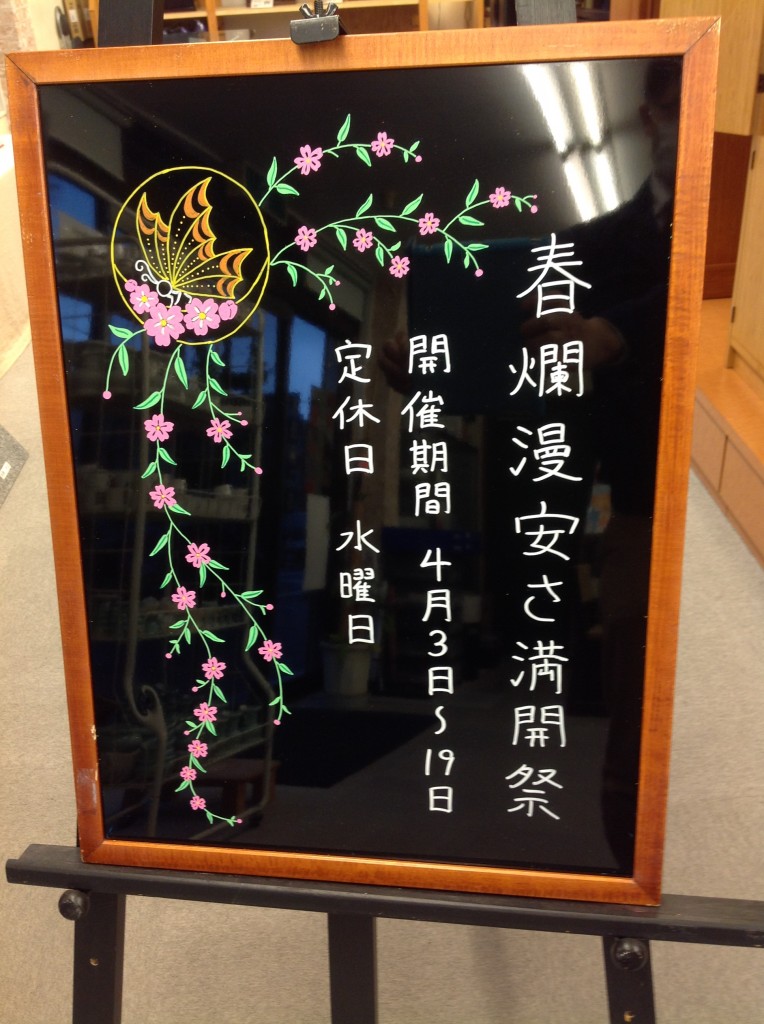 春爛漫安さ満開祭
開催期間 4月3日～19日
定休日 水曜日